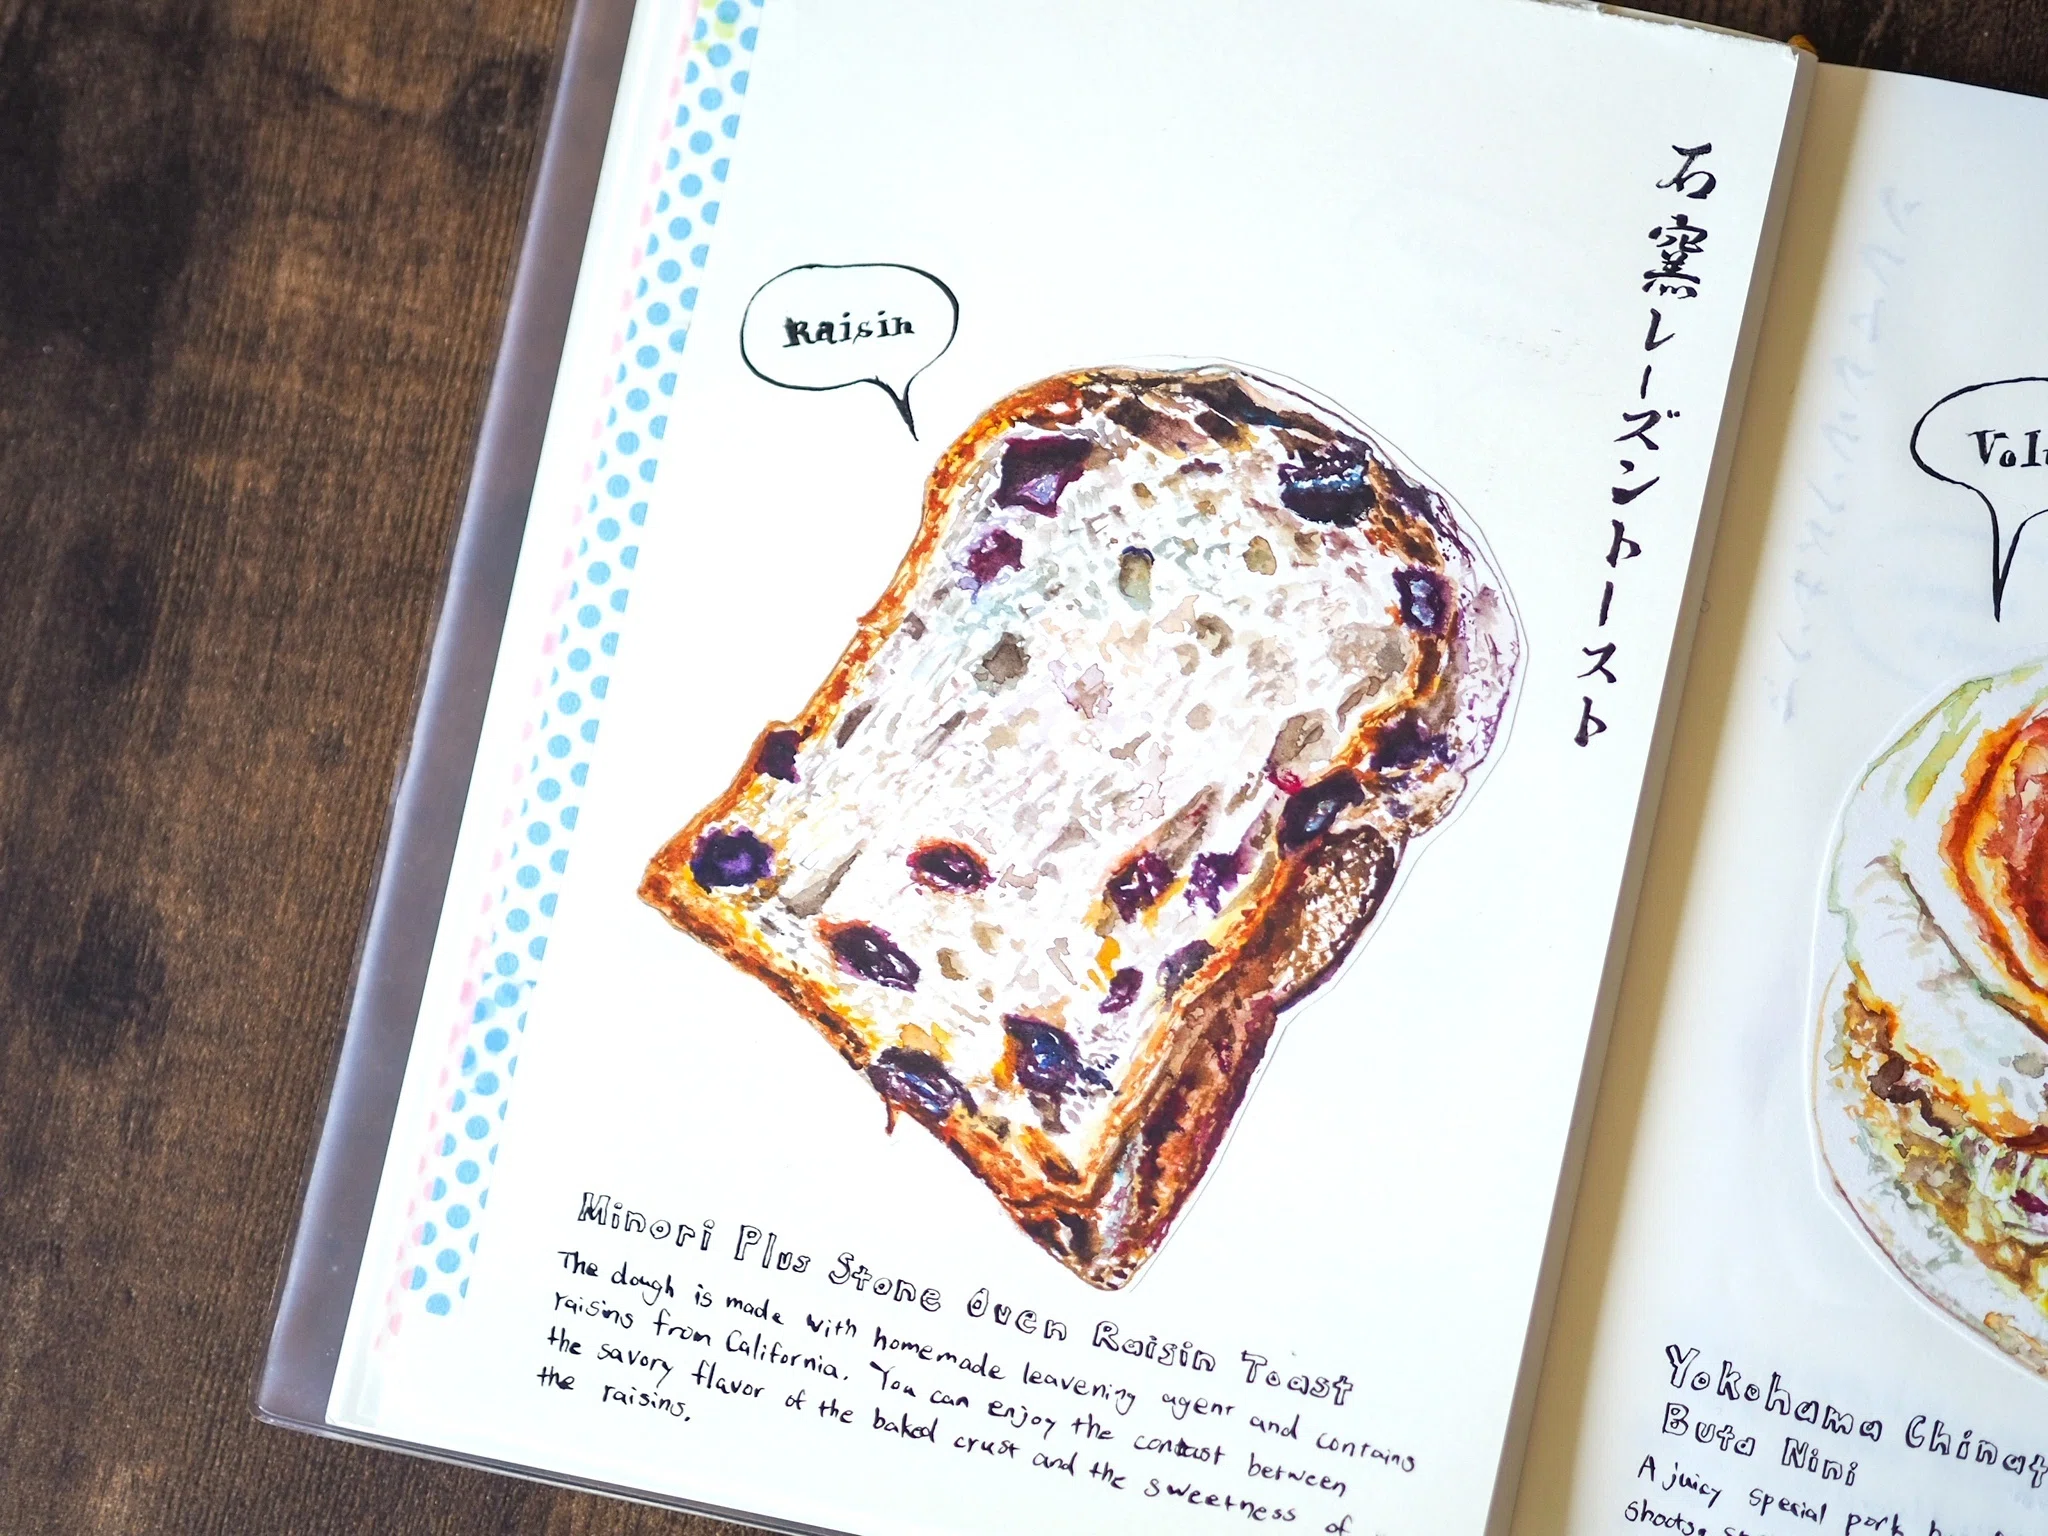 石窯レーズントースト
Raisin
Minori Plus Stone Oven Raisin Toast
The dough is made with homemade leavening agent and contains
raisins from California. You can enjoy the contast between
the savory flavor of the baked crust and the sweetness of
the raisins.
Yokohama
Buta Nini
A juicy special pork